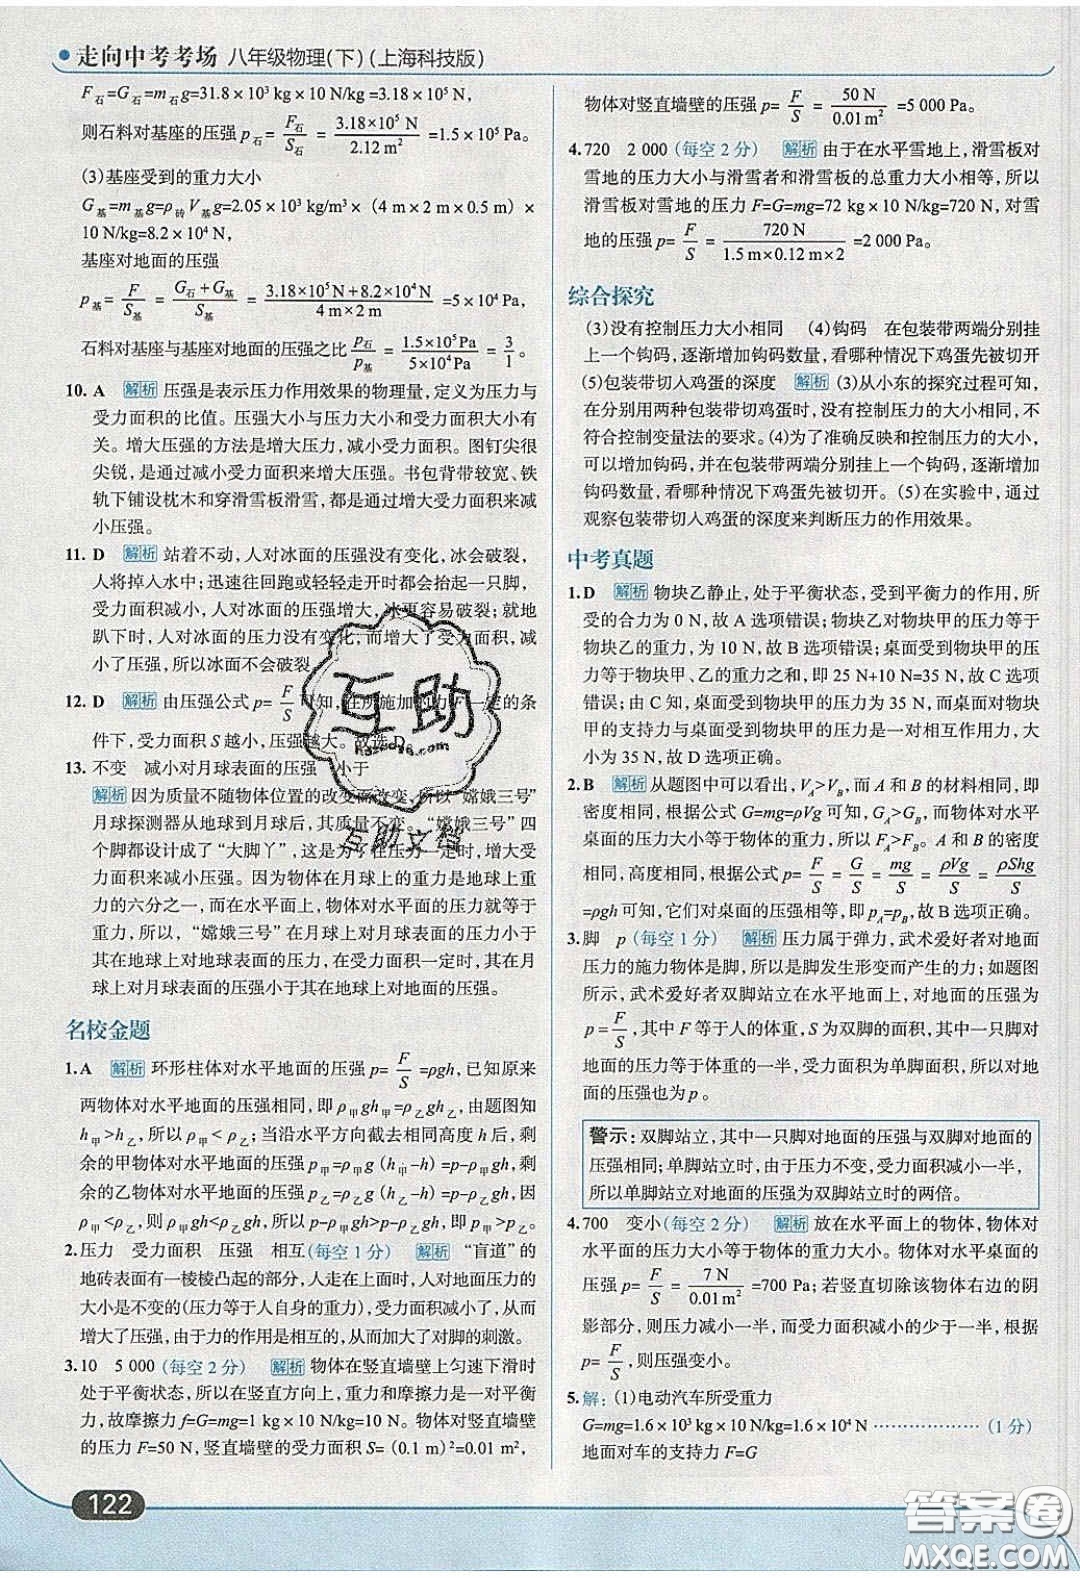 走向中考考场 八年级物理(下)(上海科技版)
F石=G石=m石g=31.8×10³ kg×10 N/kg=3.18×10⁵ N,
则石料对基座的压强p石=F石/S石=3.18×10⁵ N/2.12 m²=1.5×10⁵ Pa。
(3)基座受到的重力大小
G基=m基g=ρ砖V基g=2.05×10³ kg/m³×(4 m×2 m×0.5 m)×
10 N/kg=8.2×10⁴ N,
基座对地面的压强
p基=F/S基=(G石+G基)/S基=(3.18×10⁵ N+8.2×10⁴ N)/(4 m×2 m)=5×10⁴ Pa,
石料对基座与基座对地面的压强之比p石/p基=1.5×10⁵ Pa/5×10⁴ Pa=3/1。
10. A 解析 压强是表示压力作用效果的物理量,定义为压力与
受力面积的比值。压强大小与压力大小和受力面积大小有
关。增大压强的方法是增大压力,减小受力面积。图钉尖很
尖锐,是通过减小受力面积来增大压强。书包背带较宽、铁
轨下铺设枕木和穿滑雪板滑雪,都是通过增大受力面积来减
小压强。
11. D 解析 站着不动,人对冰面的压强没有变化,冰会破裂,
人将掉入水中;迅速往回跑或轻轻走开时都会抬起一只脚,
受力面积减小,人对冰面的压强增大,冰更容易破裂;就地
趴下时,人对冰面的压力没有变化,而增大了受力面积,减
小了压强,所以冰面不会破裂。
12. D 解析 由压强公式p=F/S可知,在所施加的力F一定的条
件下,受力面积S越小,压强越大。故选D。
13. 不变 减小对月球表面的压强 小于
解析 因为质量不随物体位置的改变而改变,所以“嫦娥三号”
月球探测器从地球到月球后,其质量不变。“嫦娥三号”四
个脚都设计成了“大脚丫”,这是为了在压力一定时,增大受
力面积来减小压强。因为物体在月球上的重力是地球上重
力的六分之一,而在水平面上,物体对水平面的压力就等于
重力,所以,“嫦娥三号”在月球上对月球表面的压力小于
其在地球上对地球表面的压力,在受力面积一定时,其在月
球上对月球表面的压强小于其在地球上对地面的压强。
名校金题
1.A 解析 环形柱体对水平地面的压强p=F/S=ρgh,已知原来
两物体对水平地面的压强相同,即ρ甲gh甲=ρ乙gh乙,由题图知
h甲>h乙,所以ρ甲<ρ乙;当沿水平方向截去相同高度h后,剩
余的甲物体对水平地面的压强p甲=ρ甲g(h甲-h)=p-ρ甲gh,
剩余的乙物体对水平地面的压强p乙=ρ乙g(h乙-h)=p-ρ乙gh,因
ρ甲<ρ乙,则ρ甲gh<ρ乙gh,所以p-ρ甲gh>p-ρ乙gh,即p甲>p乙。
2.压力 受力面积 压强 相互(每空1分) 解析 “盲道”的
地砖表面有一棱棱凸起的部分,人走在上面时,人对地面压力的
大小是不变的(压力等于人自身的重力),受力面积减小了,从而
增大了压强,由于力的作用是相互的,从而增大了对脚的刺激。
3.10 5 000(每空2分) 解析 物体在竖直墙壁上匀速下滑时
处于平衡状态,所以在竖直方向上,重力和摩擦力是一对平衡
力,故摩擦力f=G=mg=1 kg×10 N/kg=10 N。物体对竖直墙壁
的压力F=50 N,竖直墙壁的受力面积S=(0.1 m)²=0.01 m²,
物体对竖直墙壁的压强p=F/S=50 N/0.01 m²=5 000 Pa。
4.720 2 000(每空2分) 解析 由于在水平雪地上,滑雪板对
雪地的压力大小与滑雪者和滑雪板的总重力大小相等,所以
滑雪板对雪地的压力F=G=mg=72 kg×10 N/kg=720 N,对雪
地的压强p=F/S=720 N/(1.5 m×0.12 m×2)=2 000 Pa。
综合探究
(3)没有控制压力大小相同 (4)钩码 在包装带两端分别挂
上一个钩码,逐渐增加钩码数量,看哪种情况下鸡蛋先被切开
(5)包装带切入鸡蛋的深度 解析 (3)从小东的探究过程可知,
在分别用两种包装带切鸡蛋时,没有控制压力的大小相同,不
符合控制变量法的要求。(4)为了准确反映和控制压力的大小,
可以利用钩码,并在包装带两端分别挂上一个钩码,逐渐增加
钩码数量,看哪种情况下鸡蛋先被切开。(5)在实验中,通过
观察包装带切入鸡蛋的深度来判断压力的作用效果。
中考真题
1.D 解析 物块乙静止,处于平衡状态,受到平衡力的作用,所
受的合力为0 N,故A选项错误;物块乙对物块甲的压力等于
物块乙的重力,为10 N,故B选项错误;桌面受到物块甲的压
力等于物块甲、乙的重力之和,即25 N+10 N=35 N,故C选项
错误;由C知,桌面受到物块甲的压力为35 N,而桌面对物块
甲的支持力与桌面受到物块甲的压力是一对相互作用力,大
小为35 N,故D选项正确。
2.B 解析 从题图中可以看出,V_A>V_B,而A和B的材料相同,即
密度相同,根据公式G=mg=ρVg可知,G_A>G_B,而物体对水平
桌面的压力大小等于物体的重力,所以F_A>F_B。A和B的密度
相同,高度相同,根据公式p=F/S=G/S=mg/S=ρVg/S=ρShg/S
=ρgh可知,它们对桌面的压强相等,即p_A=p_B,故B选项正确。
3.脚 p(每空1分) 解析 压力属于弹力,武术爱好者对地面
压力的施力物体是脚,所以是脚发生形变而产生的力;如题图
所示,武术爱好者双脚站立在水平地面上,对地面的压强为
p=F/S,其中F等于人的体重,S为双脚的面积,其中一只脚对
地面的压力等于体重的一半,受力面积为单脚面积,所以对地
面的压强也为p。
警示:双脚站立,其中一只脚对地面的压强与双脚对地面的
压强相同;单脚站立时,由于压力不变,受力面积减小一半,
所以单脚站立对地面的压强为双脚站立时的两倍。
4.700 变小(每空2分) 解析 放在水平面上的物体,物体对
水平面的压力大小等于物体的重力大小。物体对水平桌面的
压强p=F/S=7 N/0.01 m²=700 Pa;若竖直切除该物体右边的阴
影部分,则压力减小一半,而受力面积减小的少于一半,根据
p=F/S,则压强变小。
5.解:(1)电动汽车所受重力
G=mg=1.6×10³ kg×10 N/kg=1.6×10⁴ N ……………(1分)
地面对车的支持力F=G
122
互助
hazuo98.com
互助文档
答案圈
MXQE.COM